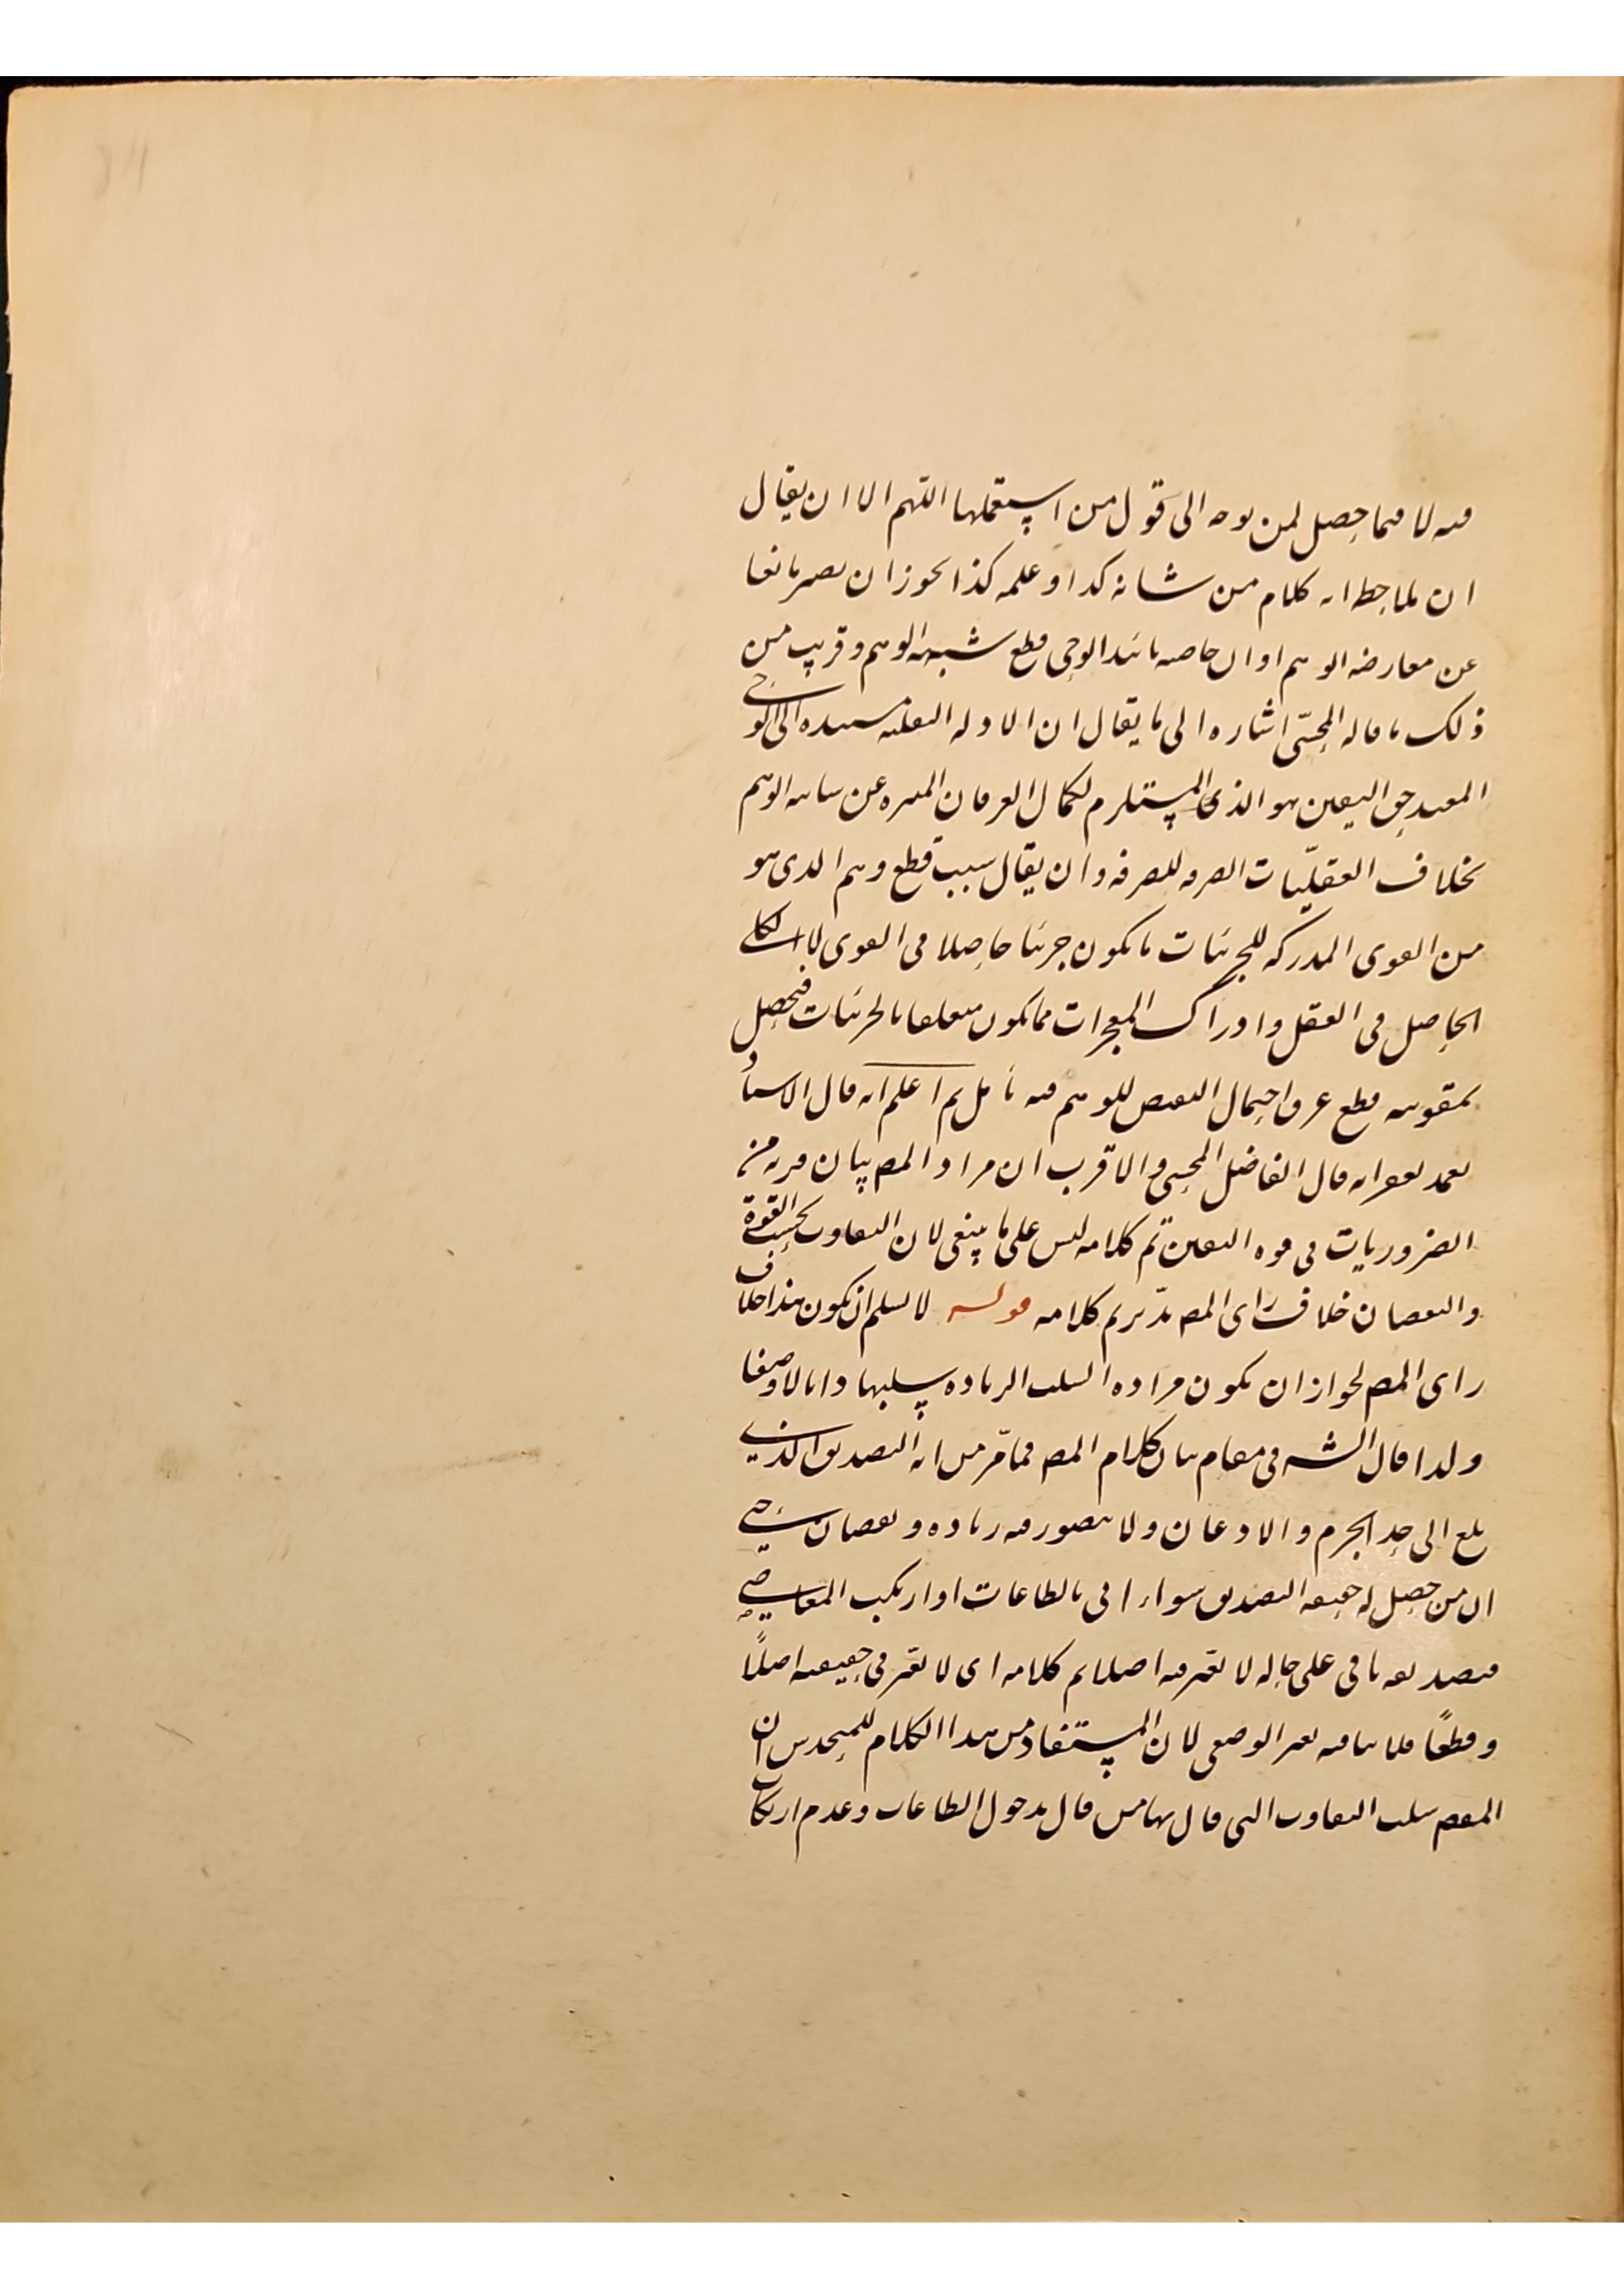 فيه لا فيما حصل لمن توجه الى قول من استعملها اللهم الا ان يقال
ان ملاحظة انه كلام من شانه كذا وعلمه كذا يجوز ان يصير مانعا
عن معارضة الوهم او ان خاصة تائيد الوحى قطع شبهة الوهم وقريب من
ذلك ما قاله المحشى اشارة الى ما يقال ان الادلة النقلية مستندة الى الوحى
المفيد حق اليقين هو الذى المستلزم لكمال العرفان المنزه عن شائبة الوهم
بخلاف العقليات الصرفة للصرفة وان يقال سبب قطع وهم الذى هو
من القوى المدركة للجزئيات ما يكون جزئيا حاصلا فى القوى لا الكلى
الحاصل فى العقل وادراك المعجزات مما يكون متعلقا بالجزئيات فيحصل
بتقويته قطع عرق احتمال النقيض للوهم فيه تامل ثم اعلم انه قال الاستاد
تغمد بغفرانه قال الفاضل المحشى والاقرب ان مراد المص بيان مرية من
الضروريات فى قوة اليقين تم كلامه ليس على ما ينبغى لان التفاوت بحسب القوة
والنقصان خلاف راى المص تدبر تم كلامه قوله لا نسلم ان يكون هذا خلاف
راى المص لجواز ان يكون مراده السلب الزيادة سلبها ذاتا لا وصفا
ولذا قال الشه فى مقام بيان كلام المص فما مر من انه التصديق الذى
بلغ الى حد الجزم والاذعان ولا يتصور فيه زيادة ونقصان حتى
ان من حصل له حقيقة التصديق سواء اتى بالطاعات او ارتكب المعاصى
فتصديقه باقى على حاله لا تغير فيه اصلا تم كلامه اى لا تغير فى حقيقته اصلًا
وقطعًا فلا ينافيه تغير الوصفى لان المستفاد من هذا الكلام للمتحدس ان
المقصـ سلب التفاوت التى قال بها من قال بدخول الطاعات وعدم ارتكاب